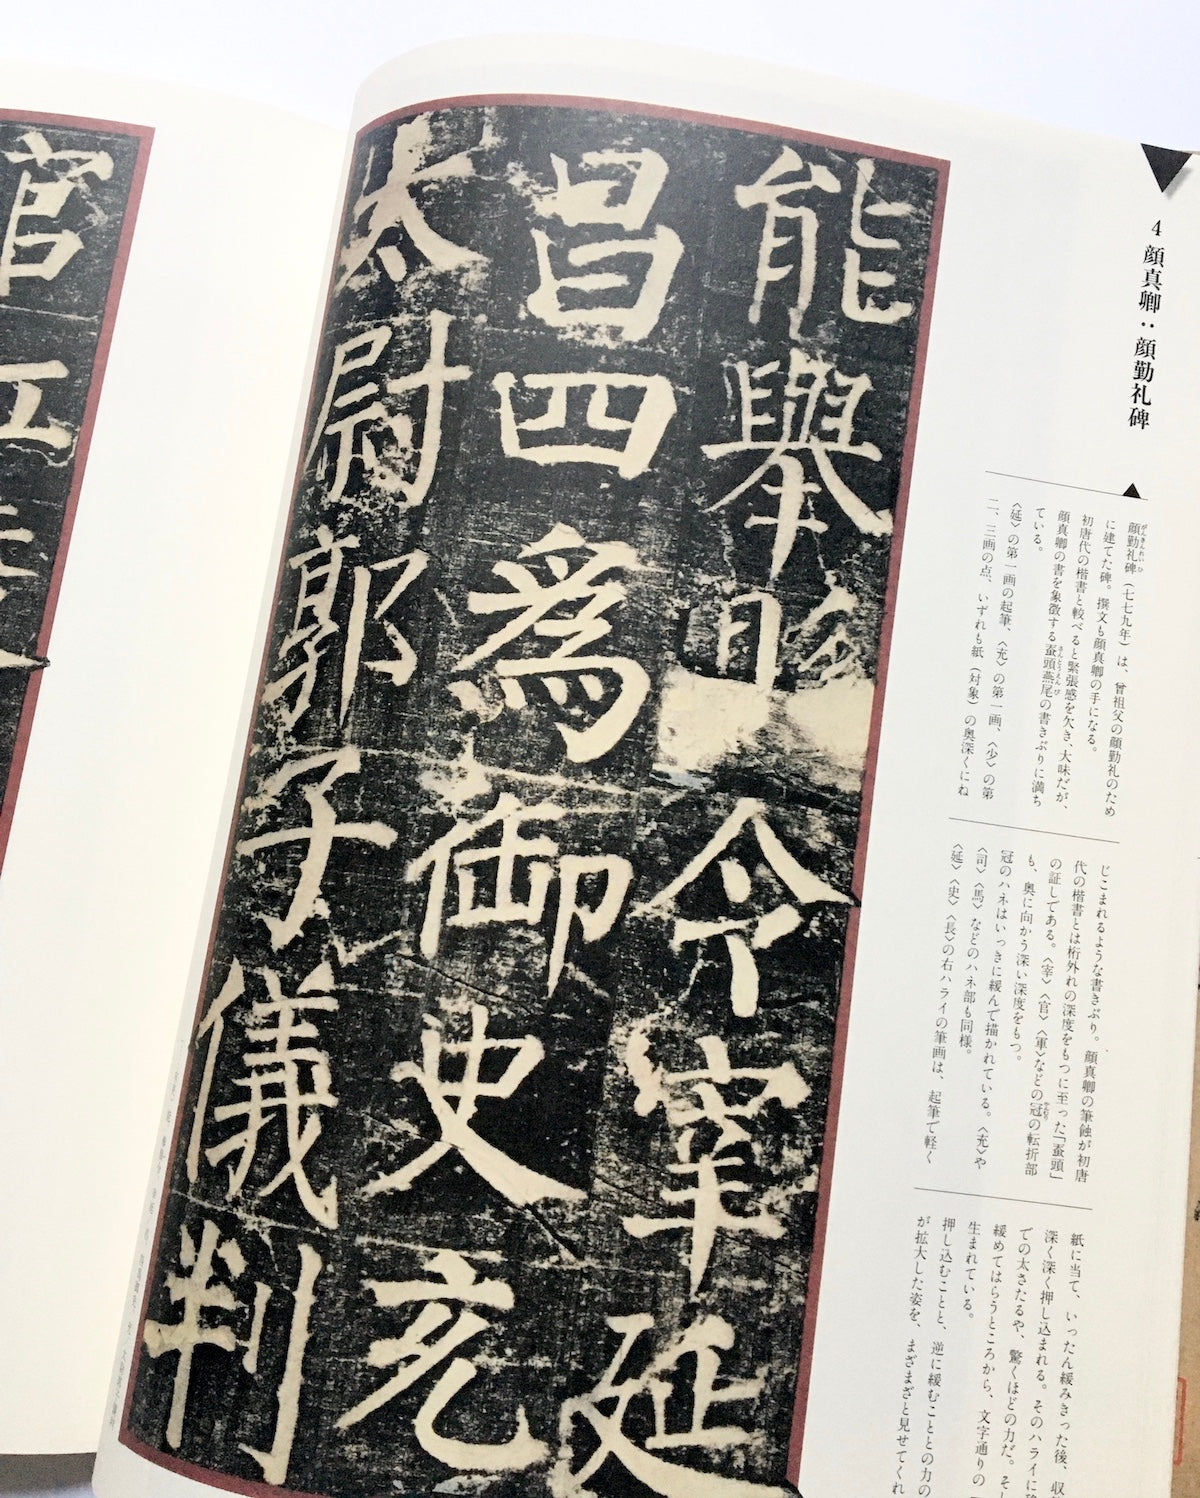 4 顔真卿：顔勤礼碑
がんきんれいひ
顔勤礼碑（七七九年）は、曾祖父の顔勤礼のため
に建てた碑。撰文も顔真卿の手になる。
初唐代の楷書と較べると緊張感を欠き、大味だが、
さんとうえんび
顔真卿の書を象徴する蚕頭燕尾の書きぶりに満ち
ている。
〈延〉の第一画の起筆、〈充〉の第一画、〈少〉の第
二、三画の点、いずれも紙（対象）の奥深くにね
じこまれるような書きぶり。顔真卿の筆蝕が初唐
代の楷書とは桁外れの深度をもつに至った「蚕頭」
の証してある。〈宰〉〈官〉〈軍〉などの冠の転折部
も、奥に向かう深い深度をもつ。
冠のハネはいっきに緩んで描かれている。〈充〉や
〈司〉〈馬〉などのハネ部も同様。
〈延〉〈史〉〈長〉の右ハライの筆画は、起筆で軽く
紙に当て、いったん緩みきった後、収
深く深く押し込まれる。そのハライに
での太さたるや、驚くほどの力だ。そ
緩めてはらうところから、文字通りの
生まれている。
押し込むことと、逆に緩むこととの力の
が拡大した姿を、まざまざと見せてくれ
能舉令宰延
昌四爲御史充
太尉郭子儀判
官